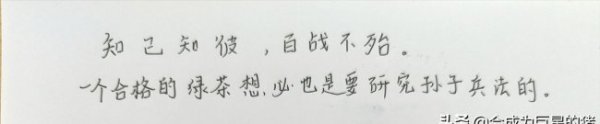 知己知彼，百战不殆。
一个合格的绿茶想必也是要研究孙子兵法的。
头条@会成为巨星的猪